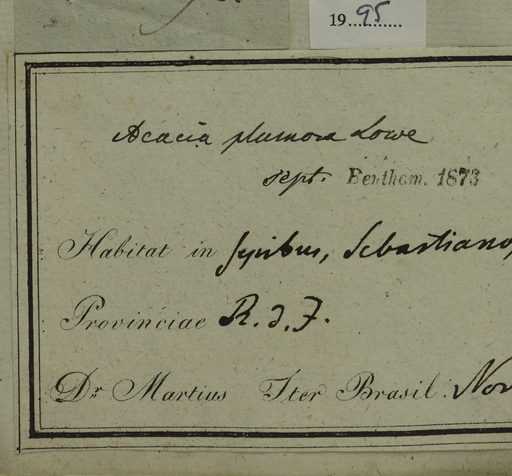 19..95......
Acacia plumosa Lowe
sept. Bentham. 1873
Habitat in sepibus, Sebastiano,
Provinciae R. d. J.
Dr. Martius Iter Brasil. Nov